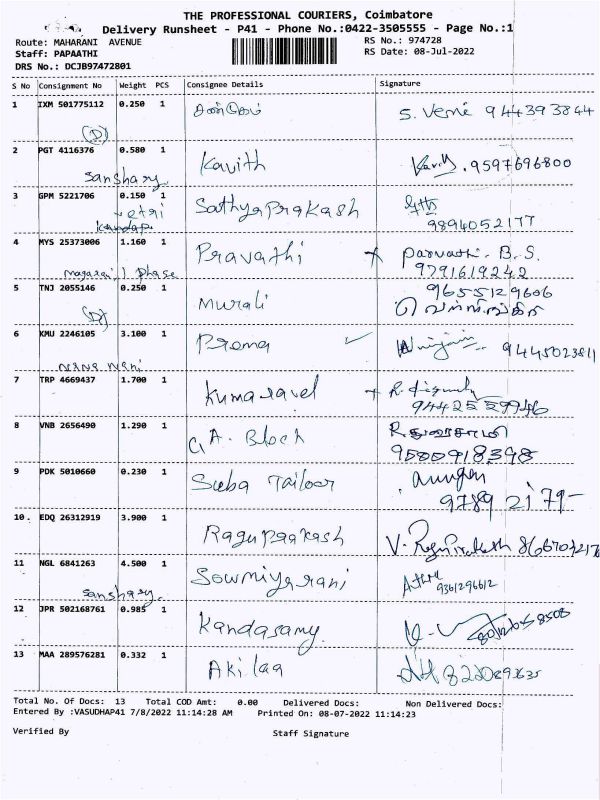 THE PROFESSIONAL COURIERS, Coimbatore
Delivery Runsheet - P41 - Phone No.:0422-3505555 - Page No.:1
Route: MAHARANI AVENUE RS No.: 974728
Staff: PAPAATHI RS Date: 08-Jul-2022
DRS No.: DCJB97472801
S No Consignment No Weight PCS Consignee Details Signature
1 IXM 501775112 0.250 1 S. Verni 944393844
(D)
2 PGT 4116376 0.580 1 Kavith 9597696800
Sanshary
3 GPM 5221706 0.150 1 Sathya Prakash
9894052177
4 MYS 25373006 1.160 1 Pravathi Parvathi. B.S.
9791619242
phase
5 TNJ 2055146 0.250 1 Murali 9655129606
(D)
6 KMU 2246105 3.100 1 Prema 9445023811
Nana Nani
7 TRP 4669437 1.700 1 Kumaravel
9442559946
8 VNB 2656490 1.290 1 G A. Block
9580918398
9 PDK 5010660 0.230 1 Suba Tailoor
9789 2179-
10 EDQ 26312919 3.900 1 Ragupraakash
11 NGL 6841263 4.500 1 Sowmiya rani
9361296612
Sanshary.
12 JPR 502168761 0.985 1 Kandasamy
13 MAA 289576281 0.332 1 Akilaa
Total No. Of Docs: 13 Total COD Amt: 0.00 Delivered Docs: Non Delivered Docs:
Entered By :VASUDHAP41 7/8/2022 11:14:28 AM Printed On: 08-07-2022 11:14:23
Verified By Staff Signature